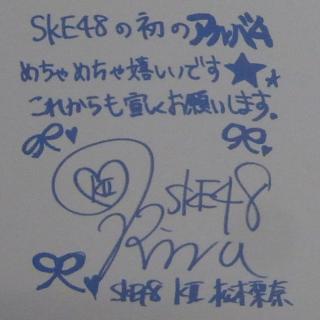 SKE48の初のアルバム
めちゃめちゃ嬉しいです★★
これからも宜しくお願いします。
KII
SKE48
Rina
SKE48 KII 松本梨奈